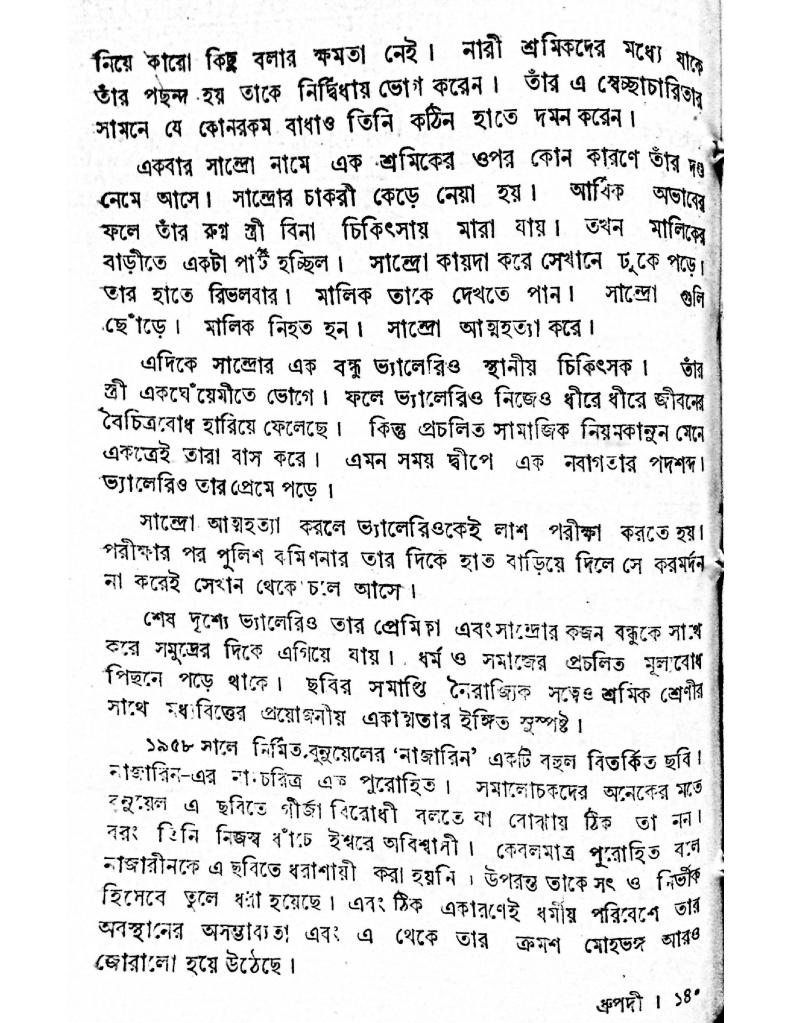 নিয়ে কারো কিছু বলার ক্ষমতা নেই। নারী শ্রমিকদের মধ্যে যাকে
তাঁর পছন্দ হয় তাকে নির্দ্বিধায় ভোগ করেন। তাঁর এ স্বেচ্ছাচারিতার
সামনে যে কোনরকম বাধাও তিনি কঠিন হাতে দমন করেন।
একবার সান্দ্রো নামে এক শ্রমিকের ওপর কোন কারণে তাঁর দণ্ড
নেমে আসে। সান্দ্রোর চাকরী কেড়ে নেয়া হয়। আর্থিক অভাবের
ফলে তাঁর রুগ্ন স্ত্রী বিনা চিকিৎসায় মারা যায়। তখন মালিকের
বাড়ীতে একটা পার্টি হচ্ছিল। সান্দ্রো কায়দা করে সেখানে ঢুকে পড়ে।
তার হাতে রিভলবার। মালিক তাকে দেখতে পান। সান্দ্রো গুলি
ছোঁড়ে। মালিক নিহত হন। সান্দ্রো আত্মহত্যা করে।
এদিকে সান্দ্রোর এক বন্ধু ভ্যালেরিও স্থানীয় চিকিৎসক। তাঁর
স্ত্রী একঘেঁয়েমীতে ভোগে। ফলে ভ্যালেরিও নিজেও ধীরে ধীরে জীবনের
বৈচিত্রবোধ হারিয়ে ফেলেছে। কিন্তু প্রচলিত সামাজিক নিয়মকানুন মেনে
একত্রেই তারা বাস করে। এমন সময় দ্বীপে এক নবাগতার পদশব্দ।
ভ্যালেরিও তার প্রেমে পড়ে।
সান্দ্রো আত্মহত্যা করলে ভ্যালেরিওকেই লাশ পরীক্ষা করতে হয়।
পরীক্ষার পর পুলিশ কমিশনার তার দিকে হাত বাড়িয়ে দিলে সে করমর্দন
না করেই সেখান থেকে চলে আসে।
শেষ দৃশ্যে ভ্যালেরিও তার প্রেমিকা এবং সান্দ্রোর কজন বন্ধুকে সাথে
করে সমুদ্রের দিকে এগিয়ে যায়। ধর্ম ও সমাজের প্রচলিত মূল্যবোধ
পিছনে পড়ে থাকে। ছবির সমাপ্তি নৈরাজ্যিক সত্ত্বেও শ্রমিক শ্রেণীর
সাথে মধ্যবিত্তের প্রয়োজনীয় একাত্মতার ইঙ্গিত সুস্পষ্ট।
১৯৫৮ সালে নির্মিত বুনুয়েলের ‘নাজারিন’ একটি বহুল বিতর্কিত ছবি।
নাজারিন-এর না চরিত্র এক পুরোহিত। সমালোচকদের অনেকের মতে
বুনুয়েল এ ছবিতে গীর্জা বিরোধী বলতে যা বোঝায় ঠিক তা নন।
বরং তিনি নিজস্ব ধাঁচে ঈশ্বরে অবিশ্বাসী। কেবলমাত্র পুরোহিত বলে
নাজারীনকে এ ছবিতে ধরাশায়ী করা হয়নি। উপরন্ত তাকে সৎ ও নির্ভীক
হিসেবে তুলে ধরা হয়েছে। এবং ঠিক একারণেই ধর্মীয় পরিবেশে তার
অবস্থানের অসম্ভাব্যতা এবং এ থেকে তার ক্রমশ মোহভঙ্গ আরও
জোরালো হয়ে উঠেছে।
ধ্রুপদী । ১৪০